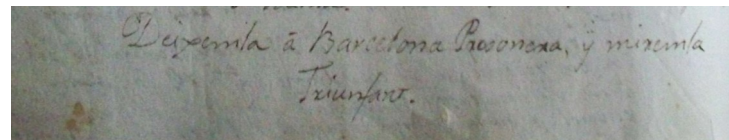 Deixemla á Barcelona Presonera, ÿ miremla
Triunfant.